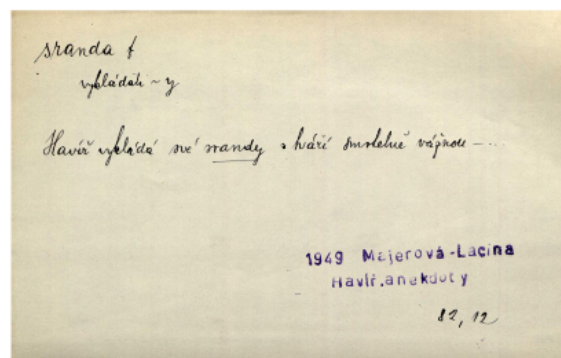 sranda f
vykládati ~ y
Havíř vykládá své srandy s tváří smrtelně vážnou – ...
1949 Majerová-Lacina
Havíř.anekdoty
82, 12